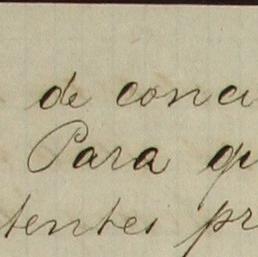 de conci
Para qu
tentes pr